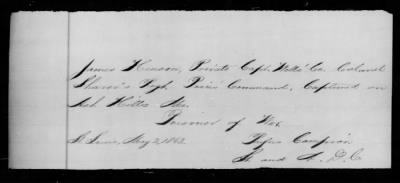 James Hinson, Private Capt. Wells' Co. Colonel
Shaver's Regt. Price's Command, Captured on
Hills Mo.
Prisoner of War
St Louis, May 2, 1863.
Rufus Campion
Lt and A. D. C.